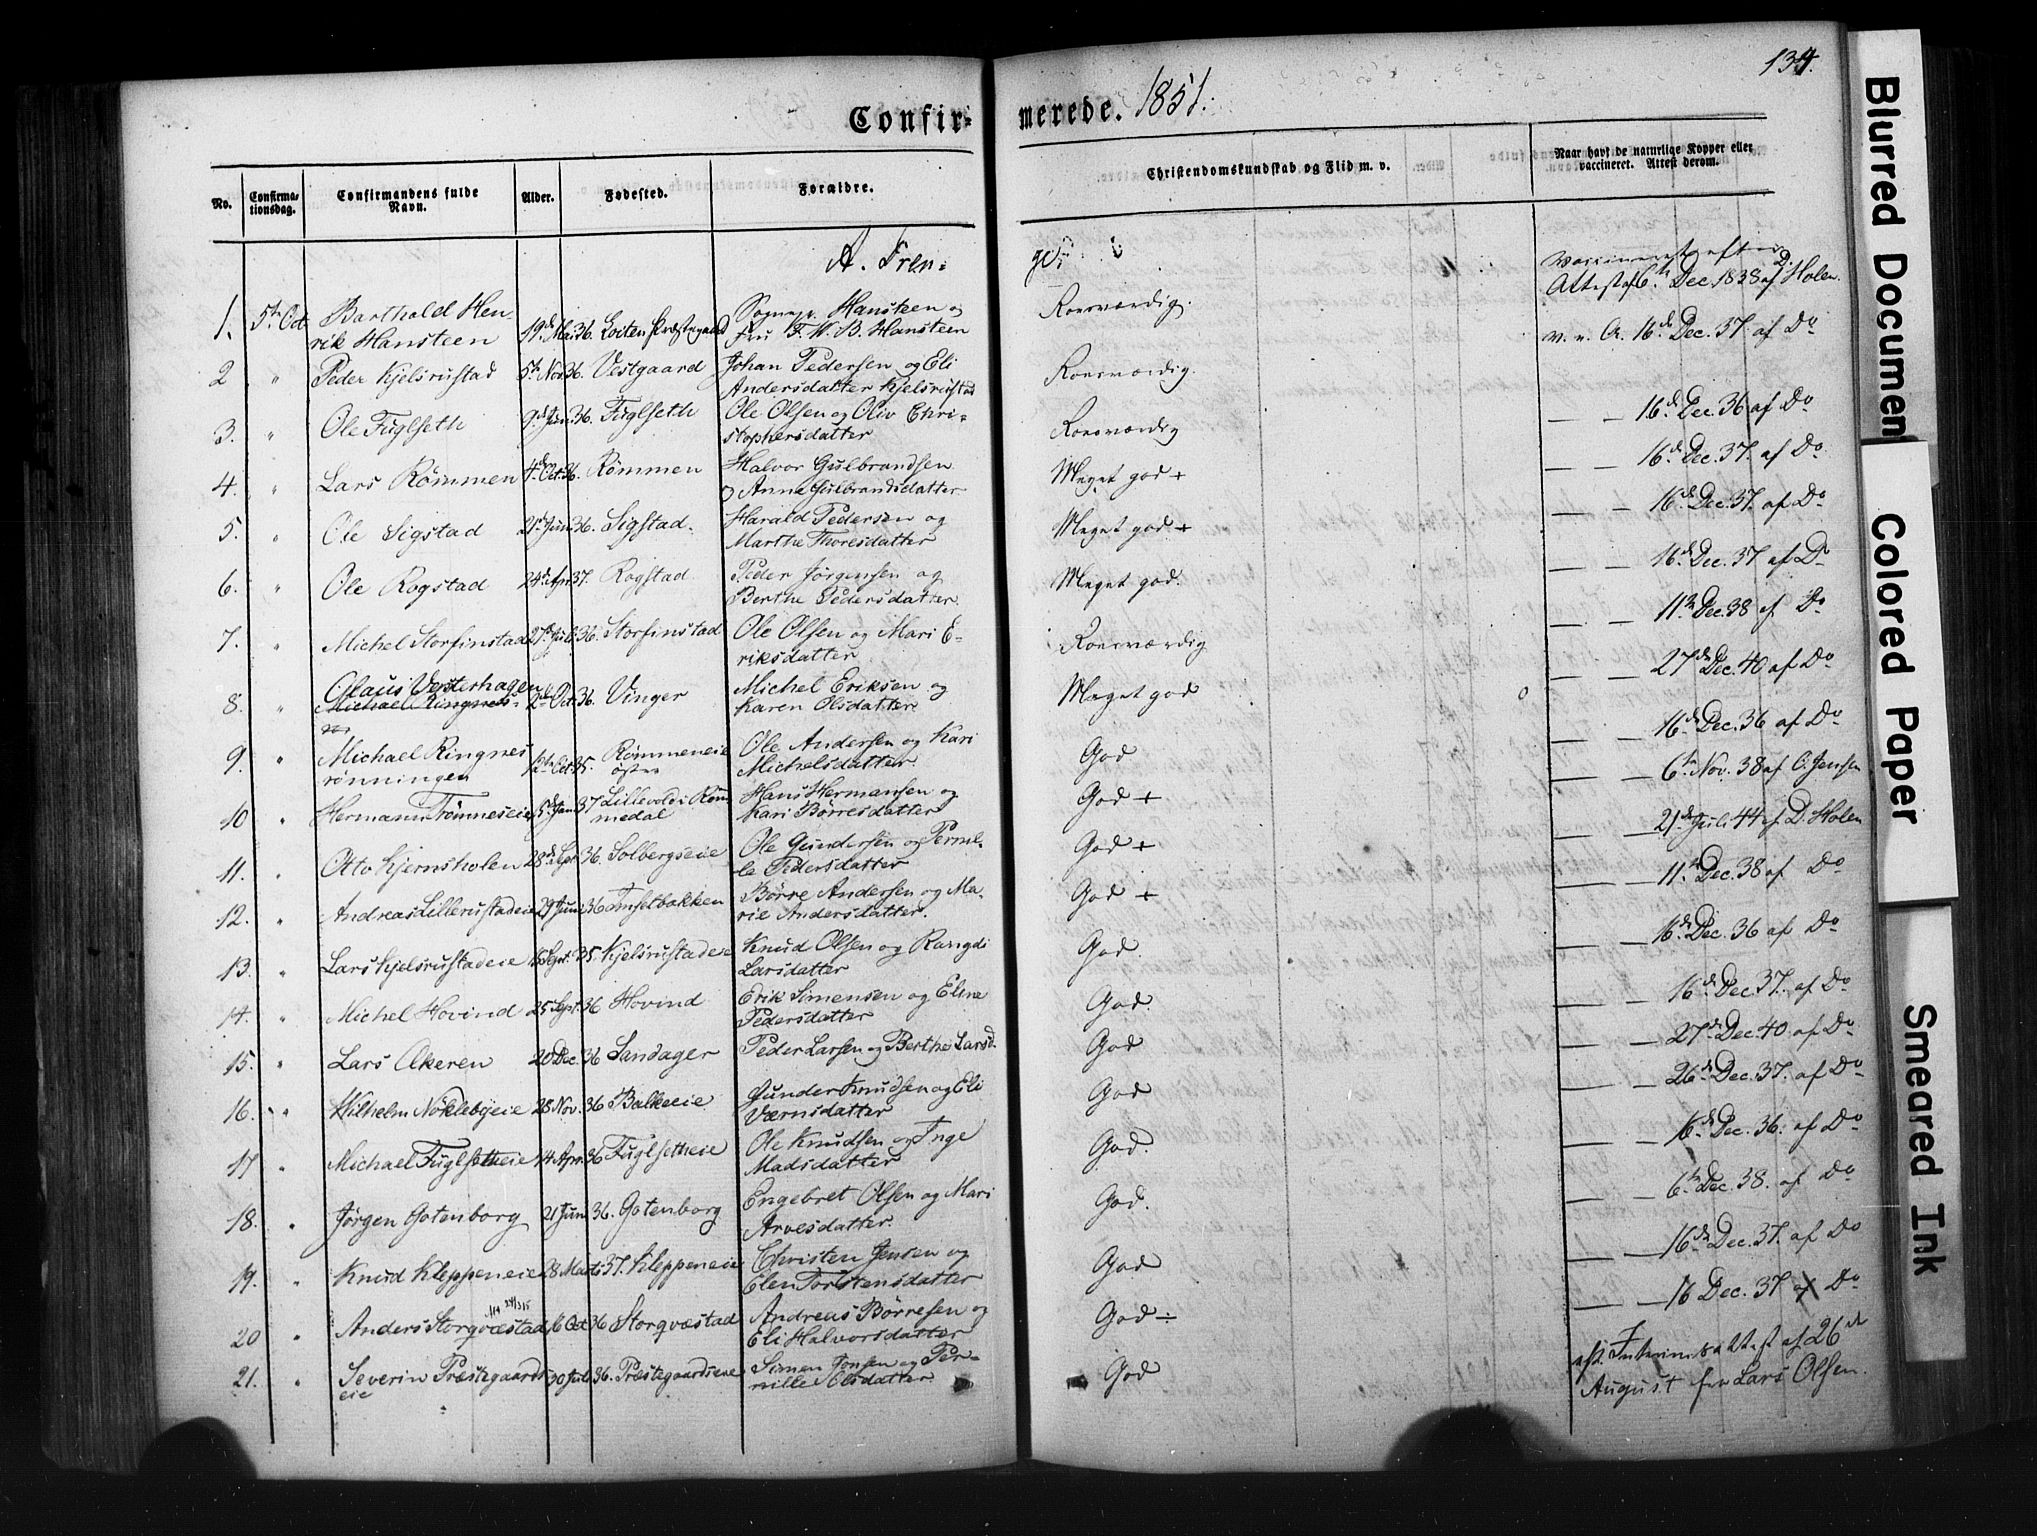 134.
Confirmerede. 1851.
No. Confirmationsdag. Confirmandens fulde Navn. Alder. Fødested. Forældre. Christendomskundskab og Flid m. v. Naar havt de naturlige Kopper eller vaccineret. Attest derom.
A. Fren=
1. 5te Oct Barthold Hen-
rik Hansteen 19de Mai 36. Loiten Præstegaard Sognep. Hansteen og
Fru F. W. B. Hansteen Roesværdig. vaccineret efter
Attest af 6te Dec. 1838 af D. Holen.
2 " Peder Kjelsrustad 5te Nov. 36. Vestgaard Johan Pedersen og Eli
Andersdatter Kjelsrustad Roesværdig. v. e. A. 16de Dec. 37. af Do
3. " Ole Fuglseth 9de Jun. 36. Fuglseth Ole Olsen og Oliv Chri-
stophersdatter Roesværdig — — 16de Dec. 36 af Do
4. " Lars Rømmen 4de Oct. 36. Rømmen Halvor Gulbrandsen
og Anne Gulbrandsdatter Meget god + — — 16de Dec. 37. af Do
5. " Ole Sigstad 21de Juni 36. Sigstad. Harald Pedersen og
Marthe Thoresdatter Meget god + — — 16de Dec. 37. af Do
6. " Ole Rogstad 24de Apr. 37. Rogstad Peder Jørgensen og
Berthe Pedersdatter. Meget god. — — 16de Dec. 37 af Do
7. " Michel Storfinstad 27de Juli 36. Storfinstad Ole Olsen og Mari E-
riksdatter Roesværdig — — 11te Dec. 38 af Do
8. " Claus Vesterhagen
Michael Ringnes- 2de Oct. 36. Vinger Michel Eriksen og
Karen Olsdatter Meget god — — 27de Dec. 40 af Do
9. " Michael Ringnes
rønningen 12te Oct. 35. Rømmeneie
østre Ole Andersen og Kari
Michelsdatter. God — — 16de Dec. 36 af Do
10 " Hermann Tømmeseie 5te Jan. 37 Lillevold i Rom
medal Hans Hermansen og
Kari Børresdatter God + — — 6te Nov. 38 af O. Jensen
11. " Otto Kjernsholen 28de Sept 36. Solbergseie Ole Gundersen og Pernil-
le Pedersdatter God + — — 21de Juli 44 af D. Holen
12. " Andreas Lillerustadeie 29 Juni 36 Børre Andersen og Ma-
rie Andersdatter. God + — — 11te Dec. 38 af Do
13. " Lars Kjelsrustadeie Sept. 35 Kjelsrustadeie Knud Olsen og Rangdi
Larsdatter God. — — 16de Dec. 36 af Do
14. " Michel Hovind 25 Sept. 36 Hovind Erik Simensen og Eline
Pedersdatter God. — — 16de Dec. 37. af Do
15. " Lars Akeren 20 Dec. 36 Sandager Peder Larsen og Berthe Larsd. God — — 27de Dec. 40. af Do
16. " Wilhelm Nøklebyeie 28 Nov. 36 Balkeeie Gunder Knudsen og Eli
Værnsdatter God — — 26de Dec. 37. af Do
17 " Michael Fuglsetheie 14 Apr. 36 Fuglsetheie Ole Knudsen og Inge
Madsdatter God. — — 16de Dec. 36. af Do
18. " Jørgen Gotenborg 21 Juni 36. Gotenborg Engebret Olsen og Mari
Arvesdatter. God. — — 6te Dec. 38. af Do
19. " Knud Kleppeneie 28 Marts 37. Kleppeneie Christen Jensen og
Elen Torstensdatter God — — 16de Dec. 37. af Do
20 " Anders Storqvæstad 16 Oct 36 Storqvæstad Andreas Børresen og
Eli Halvorsdatter God ÷ — — 16 Dec. 37 af Do
21. " Severin Præstegaards
eie 30 Juli 36. Præstegaardseie Simen Jonsen og Per-
nille Olsdatter God eft. Interimsattest af 26de
August fra Lars Olsen.
Blurred Document
Colored Paper
Smeared Ink